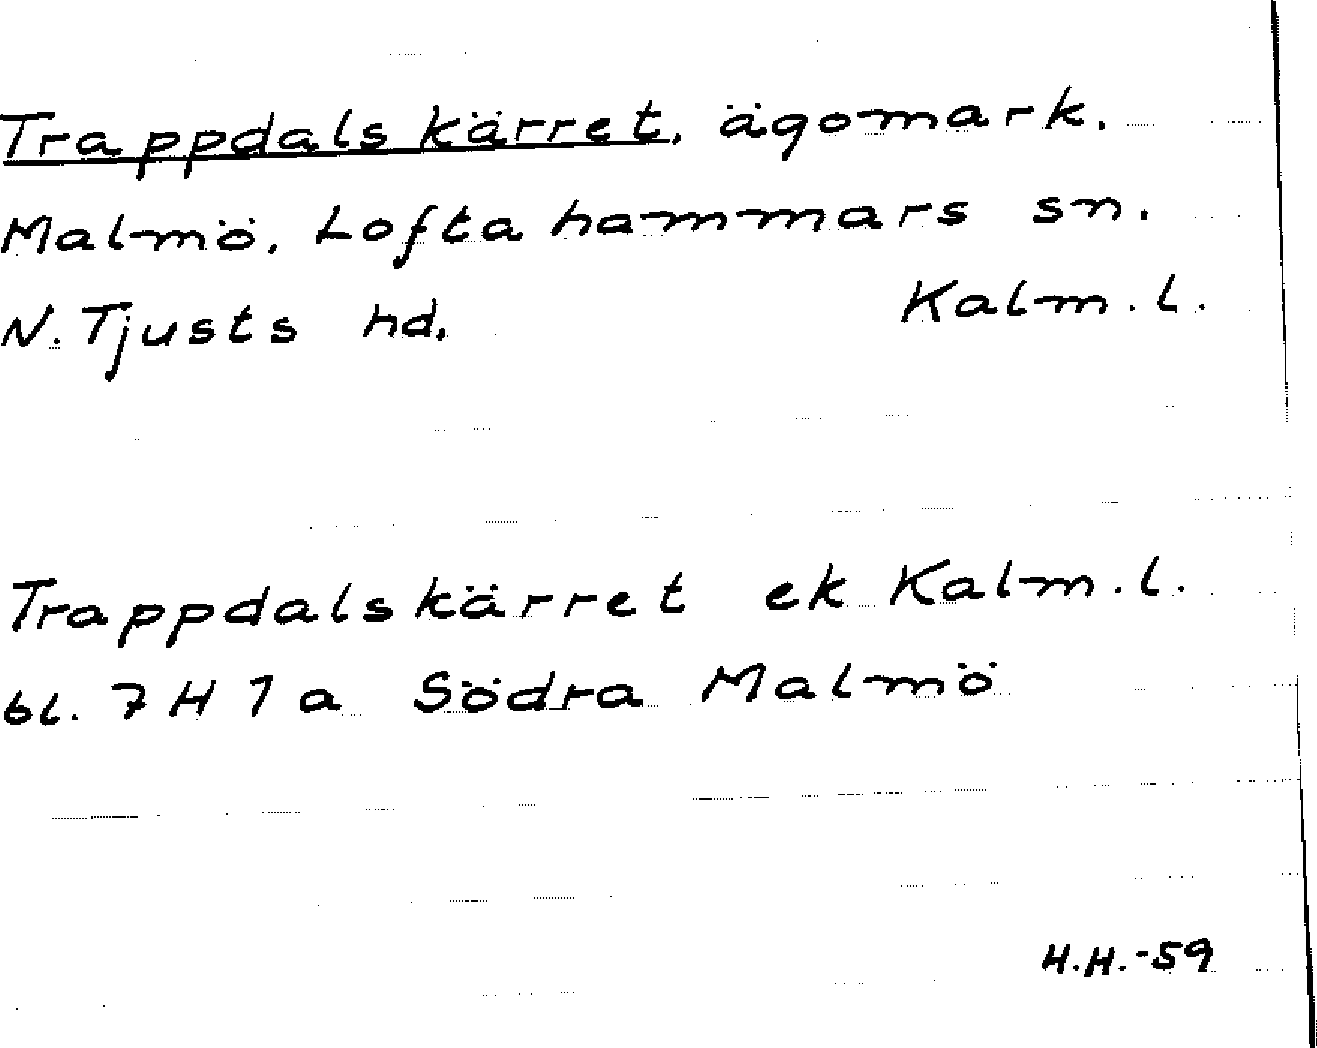 Trappdalskärret, ägomark.
Malmö, Loftahammars sn.
N. Tjusts hd. Kalm. l.
Trappdalskärret ek Kalm. l.
bl. 7 H 7 a Södra Malmö
H.H.-59